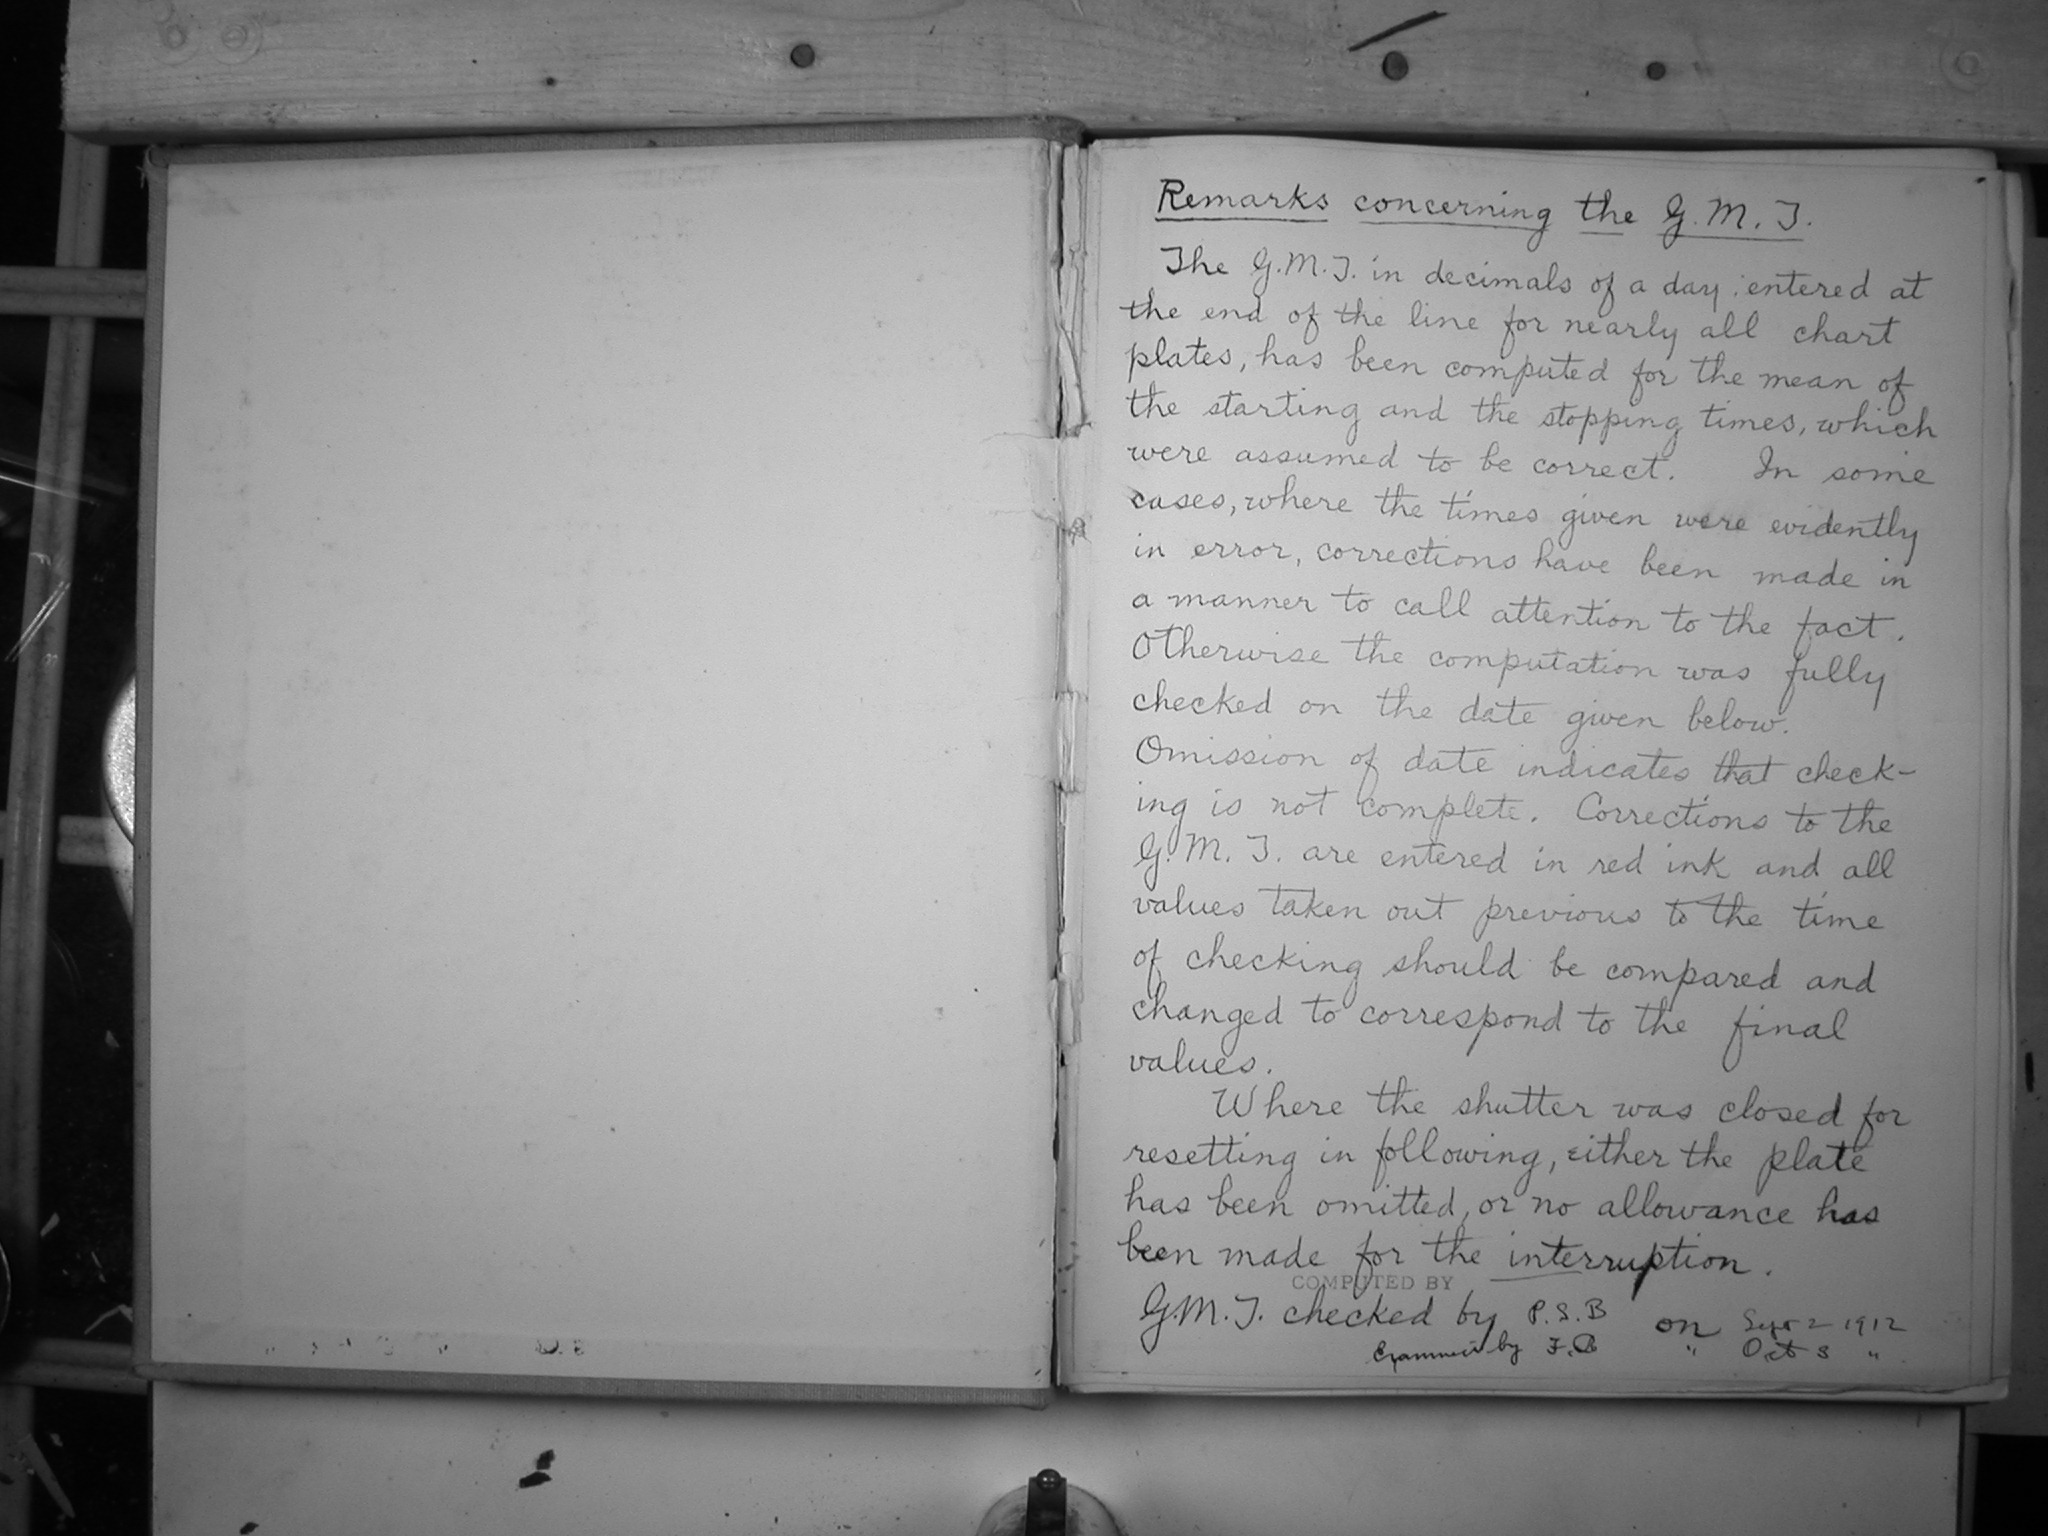 Remarks concerning the G.M.T.
The G.M.T. in decimals of a day, entered at
the end of the line for nearly all chart
plates, has been computed for the mean of
the starting and the stopping times, which
were assumed to be correct. In some
cases, where the times given were evidently
in error, corrections have been made in
a manner to call attention to the fact.
Otherwise the computation was fully
checked on the date given below.
Omission of date indicates that check-
ing is not complete. Corrections to the
G.M.T. are entered in red ink and all
values taken out previous to the time
of checking should be compared and
changed to correspond to the final
values.
Where the shutter was closed for
resetting in following, either the plate
has been omitted, or no allowance has
been made for the interruption.
COMPUTED BY
G.M.T. checked by P.S.B on Sept 2 1912
Examined by " Oct 3 "